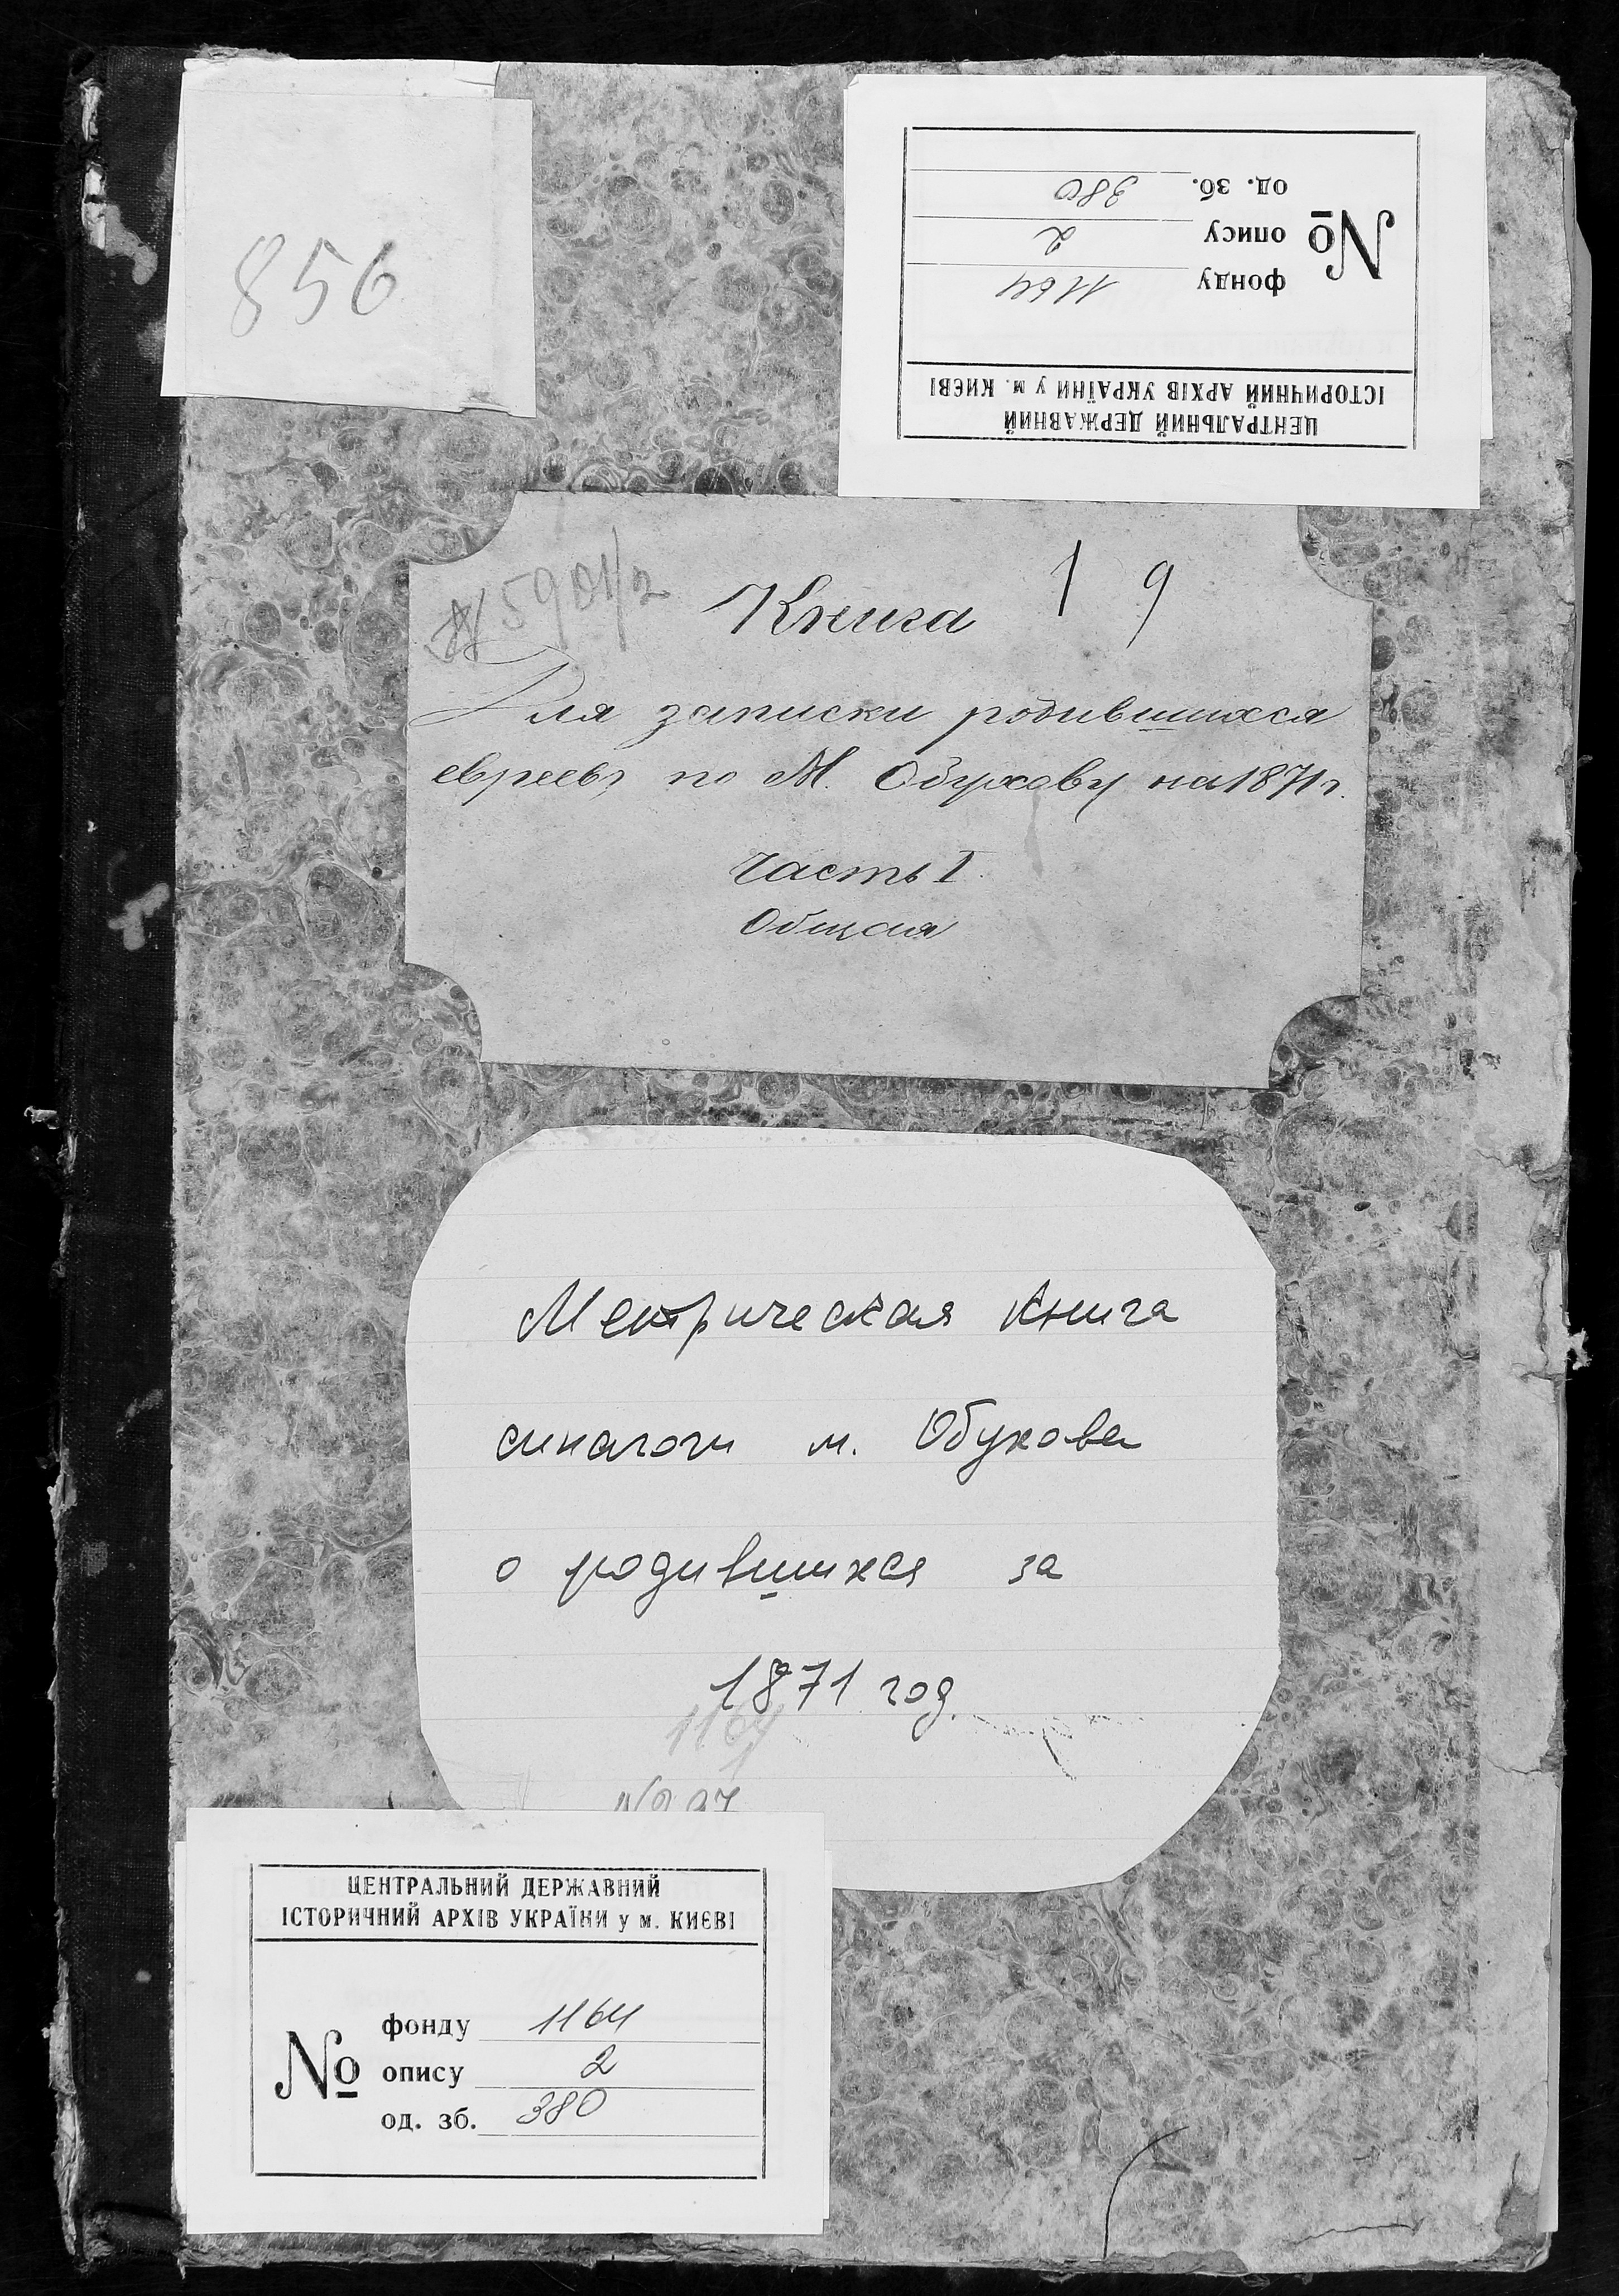 856
ЦЕНТРАЛЬНИЙ ДЕРЖАВНИЙ
ІСТОРИЧНИЙ АРХІВ УКРАЇНИ у м. КИЄВІ
№
фонду 1164
опису 2
од. зб. 380
№ 5901/2
Книга 1 9
Для записки родившихся
евреевъ по М. Обухову на 1871 г.
Часть I.
Общая
Метрическая книга
синагоги м. Обухова
о родившихся за
1871 год.
1164
ЦЕНТРАЛЬНИЙ ДЕРЖАВНИЙ
ІСТОРИЧНИЙ АРХІВ УКРАЇНИ у м. КИЄВІ
№
фонду 1164
опису 2
од. зб. 380